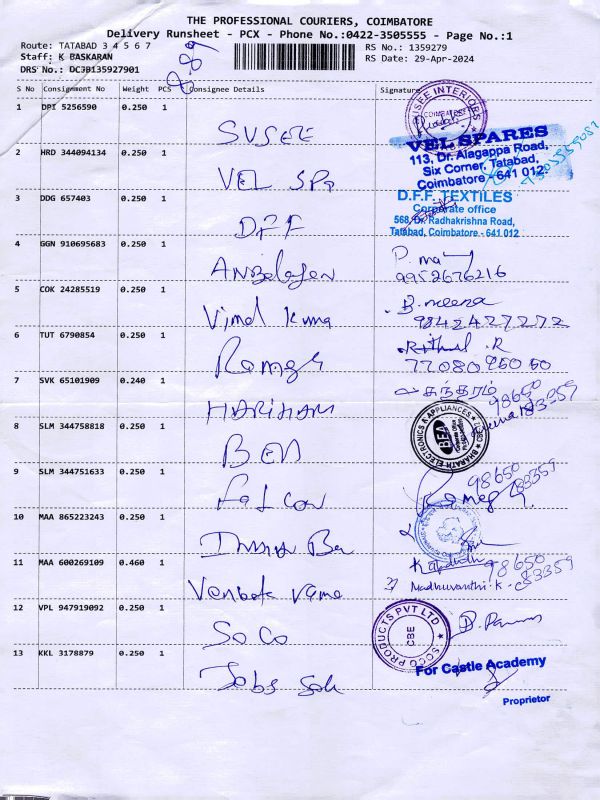 THE PROFESSIONAL COURIERS, COIMBATORE
Delivery Runsheet - PCX - Phone No.:0422-3505555 - Page No.:1
Route: TATABAD 3 4 5 6 7
RS No.: 1359279
Staff: K BASKARAN
RS Date: 29-Apr-2024
DRS No.: DC3B135927901
S No Consignment No Weight PCS Consignee Details Signature
1 DPI 5256590 0.250 1 SUSEE
SUSEE INTERIORS
COIMBATORE
2 HRD 344094134 0.250 1 VEL SPa
VEL SPARES
113, Dr. Alagappa Road,
Six Corner, Tatabad,
Coimbatore - 641 012.
3 DDG 657403 0.250 1 DFF
D.F.F. TEXTILES
Corporate office
568, Dr. Radhakrishna Road,
Tatabad, Coimbatore - 641 012
4 GGN 910695683 0.250 1 ANBalagan
9952676216
5 COK 24285519 0.250 1 Vimal kuma
B.meena
9842427272
6 TUT 6790854 0.250 1 Ramesh
Rithul .R
7 SVK 65101909 0.240 1 HARIHARA
சுந்தரம்
98650
8 SLM 344758818 0.250 1 BEA
BHARATH ELECTRONICS & APPLIANCES
BEA
9 SLM 344751633 0.250 1 Falcon
98650
83359
10 MAA 865223243 0.250 1
11 MAA 600269109 0.460 1 Venkata rama
98650
83359
Madhuvanthi. K.
12 VPL 947919092 0.250 1 SoCo
SOCO PRODUCTS PVT LTD
CBE
13 KKL 3178879 0.250 1
For Castle Academy
Proprietor